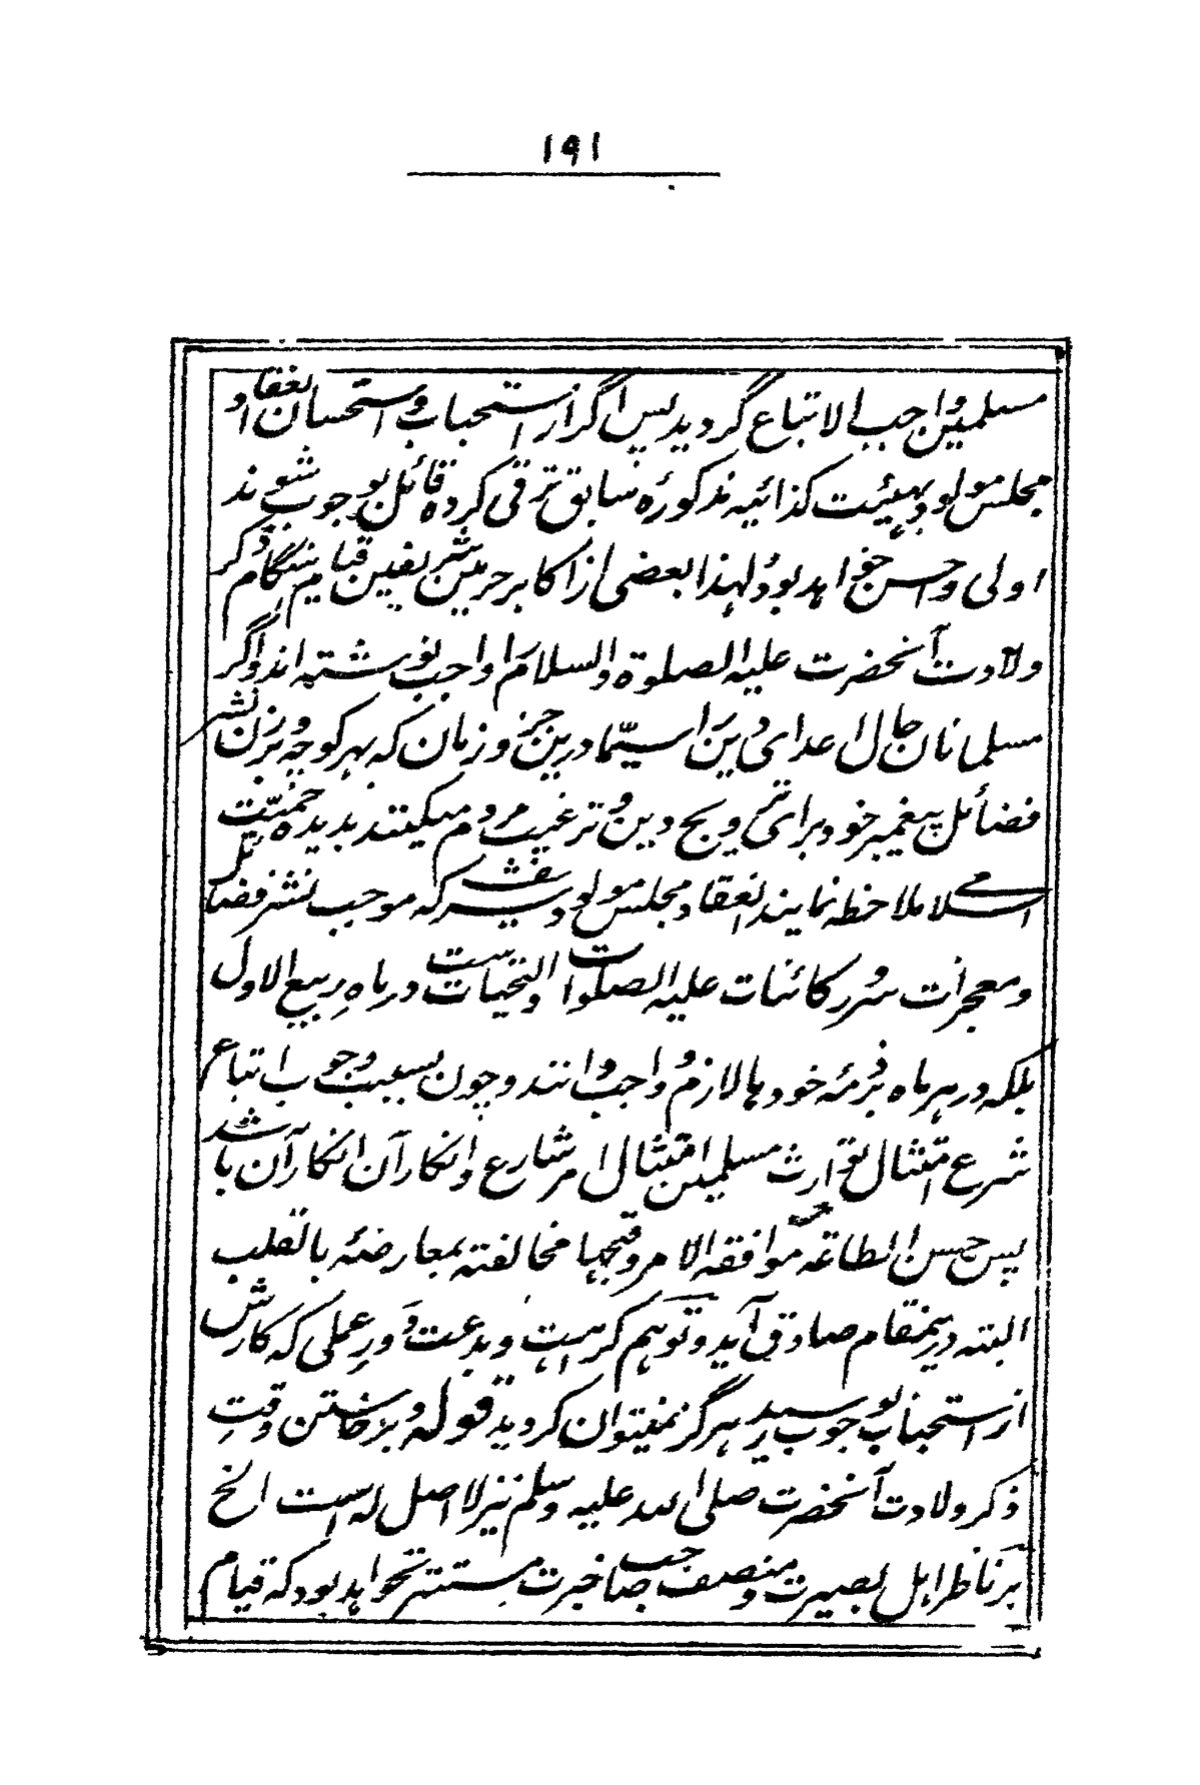 ۱۹۱
مسلمین واجب الاتباع گردید پس اگر از استحباب و استحسان انعقاد
مجلس مولود بهیئت کذائیه مذکوره سابق ترقی کرده قائل بوجوب شوند
اولی و احسن خواهد بود لهذا بعضی از اکابر حرمین شریفین قیام هنگام ذکر
ولادت آنحضرت علیه الصلوة والسلام را واجب نوشته اند و اگر
مسلمانان حال اعدای دین را سیّما درین جزو زمان که بهر کوچه و برزن نشر
فضائل پیغمبر خود برای ترویج دین و ترغیب مردم میکنند بدیده حمیّت
اسلامی ملاحظه نمایند انعقاد مجلس مولود شریف که موجب نشر فضائل
و معجزات سرور کائنات علیه الصلوات والتحیات ست در ماهِ ربیع الاول
بلکه در هر ماه بر ذمّه خودها لازم و واجب دانند و چون بسبب وجوب اتباع
شرع امتثال توارث مسلمین امتثال امر شارع و انکار آن انکار آن باشد
پس حسن الطاعة موافقه الامر وقبحها مخالفته بمعارضهٔ بالقلب
البته درینمقام صادق آید و توهم کراهت و بدعت در عملی که کارش
از استحباب بوجوب رسید هرگز نمیتوان کردید قوله و برخاستن وقتِ
ذکر ولادت آنحضرت صلی الله علیه وسلم نیز لا اصل له است الخ
بر ناظر اهل بصیرت و منصف صاحب خبرت مستتر نخواهد بود که قیام